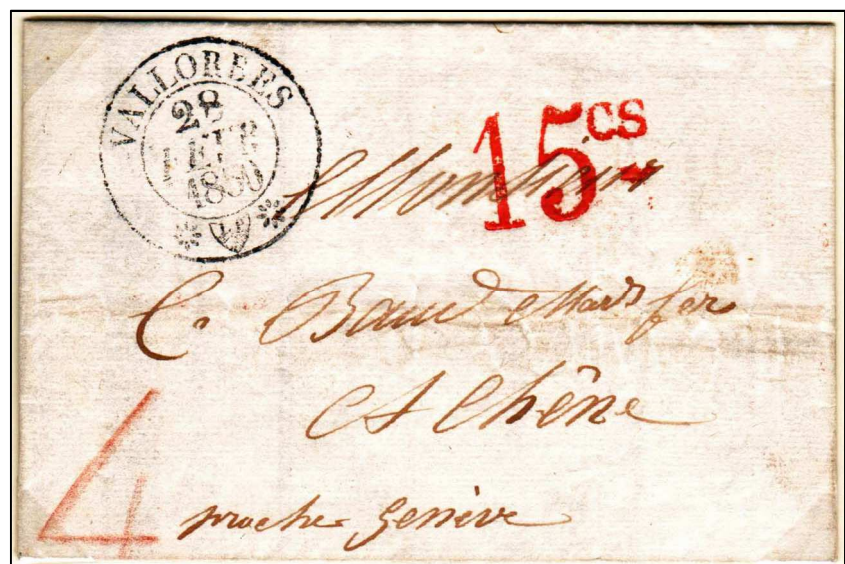 VALLORBES
28
FEVR
1850
15 cs
Monsieur
C. Baud Mard fer
A Chêne
proche Genève
4